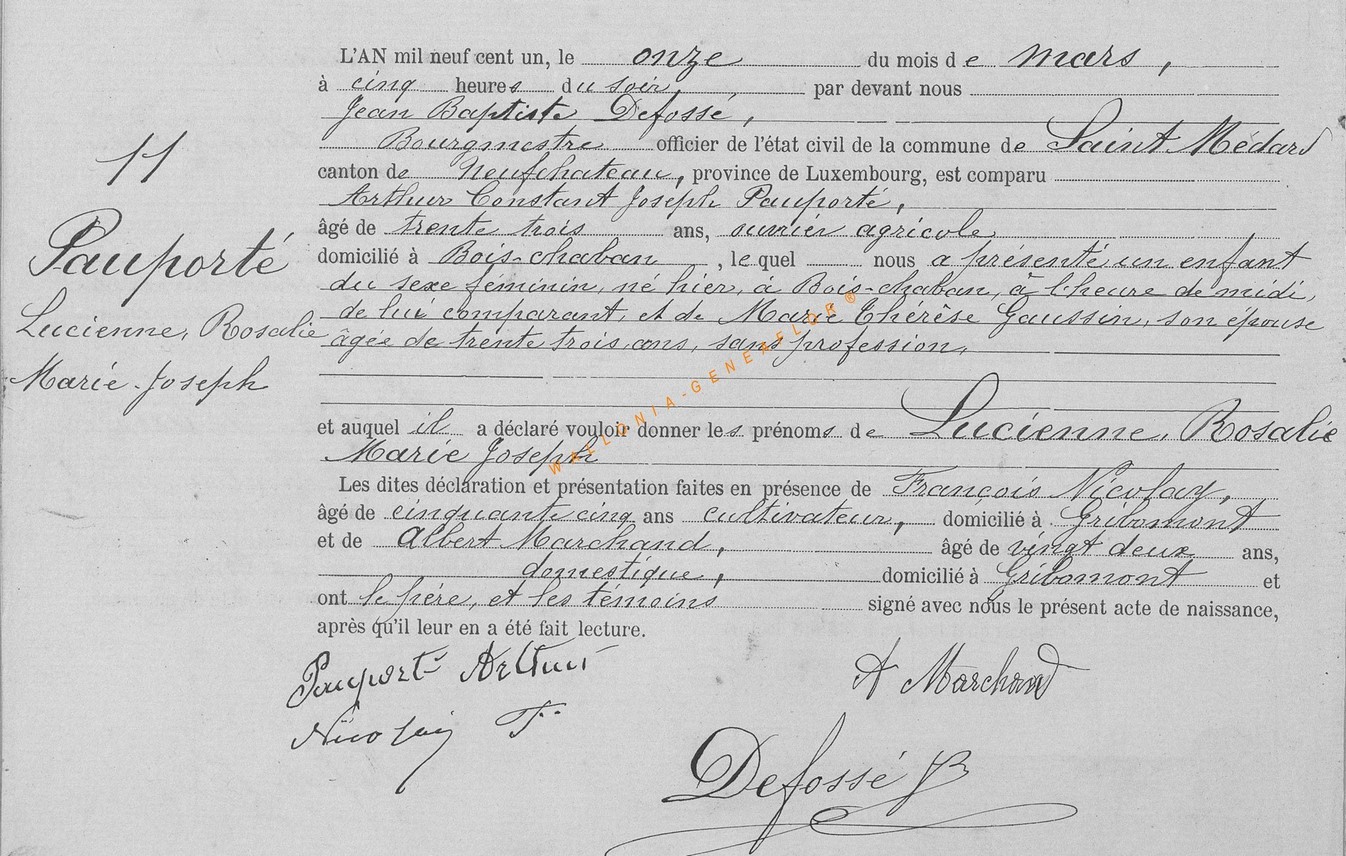 11
Pauporté
Lucienne, Rosalie
Marie-Joseph
L'AN mil neuf cent un, le onze du mois de mars,
à cinq heures du soir, par devant nous
Jean Baptiste Defossé,
Bourgmestre officier de l'état civil de la commune de Saint Médard
canton de Neufchateau, province de Luxembourg, est comparu
Arthur Constant Joseph Pauporté,
âgé de trente trois ans, ouvrier agricole,
domicilié à Bois-chaban, lequel nous a présenté un enfant
du sexe féminin, né hier, à Bois-chaban, à l'heure de midi,
de lui comparant, et de Marie Thérèse Gaussin, son épouse
âgée de trente trois ans, sans profession,
et auquel il a déclaré vouloir donner les prénoms de Lucienne, Rosalie
Marie Joseph
Les dites déclaration et présentation faites en présence de François Nicolay,
âgé de cinquante cinq ans cultivateur, domicilié à Gribomont
et de Albert Marchand, âgé de vingt deux ans,
domestique, domicilié à Gribomont et
ont le père, et les témoins signé avec nous le présent acte de naissance,
après qu'il leur en a été fait lecture.
Pauporté Arthur
A Marchand
Nicolaÿ F.
Defossé JB
WALLONIA-GENEAFLOR®